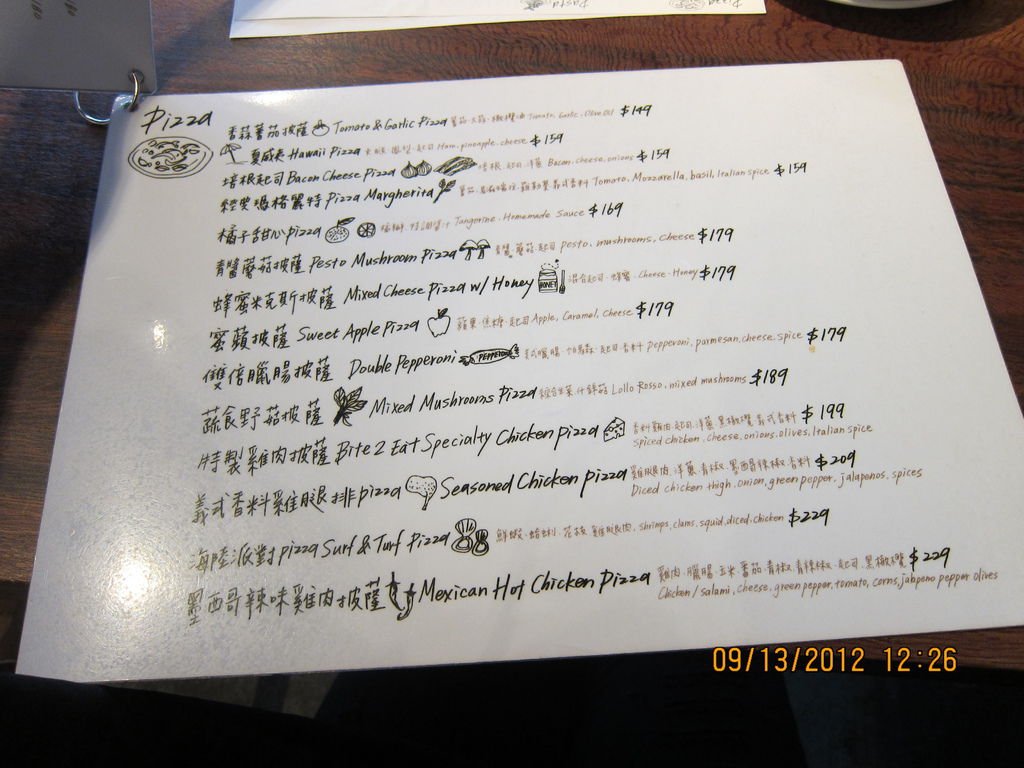 Pizza
香蒜蕃茄披薩 Tomato & Garlic Pizza 蕃茄、大蒜、橄欖油 Tomato, Garlic, Olive Oil $149
夏威夷 Hawaii Pizza 起司 Ham, pineapple, cheese $159
培根起司 Bacon Cheese Pizza 培根、起司、洋蔥 Bacon, cheese, onions $159
經典瑪格麗特 Pizza Margherita 義式香料 Tomato, Mozzarella, basil, Italian spice $159
橘子甜心 pizza 特調醬汁 Tangerine, Homemade Sauce $169
青醬蘑菇披薩 Pesto Mushroom Pizza 青醬、蘑菇、起司 pesto, mushrooms, cheese $179
蜂蜜米克斯披薩 Mixed Cheese Pizza w/ Honey HONEY 混合起司、蜂蜜、Cheese, Honey $179
蜜蘋披薩 Sweet Apple Pizza 蘋果、焦糖、起司 Apple, Caramel, cheese $179
雙倍臘腸披薩 Double Pepperoni PEPPERONI 美式臘腸、帕馬森、起司、香料 pepperoni, parmesan, cheese, spice $179
蔬食野菇披薩 Mixed Mushrooms Pizza 綜合生菜、什錦菇 Lollo Rosso, mixed mushrooms $189
特製雞肉披薩 Bite 2 Eat Specialty Chicken pizza 香料雞肉、起司、洋蔥、黑橄欖、義式香料 $199
spiced chicken, cheese, onions, olives, Italian spice
義式香料雞腿排 pizza Seasoned Chicken pizza 雞腿肉、洋蔥、青椒、墨西哥辣椒、香料 $209
Diced chicken thigh, onion, green pepper, jalapenos, spices
海陸派對 pizza Surf & Turf Pizza 鮮蝦、蛤蜊、花枝、雞腿肉、shrimps, clams, squid, diced chicken $229
墨西哥辣味雞肉披薩 Mexican Hot Chicken Pizza 雞肉、臘腸、玉米、蕃茄、青椒、青辣椒、起司、黑橄欖 $229
Chicken / salami, cheese, green pepper, tomato, corns, jalapeno pepper olives
09/13/2012 12:26